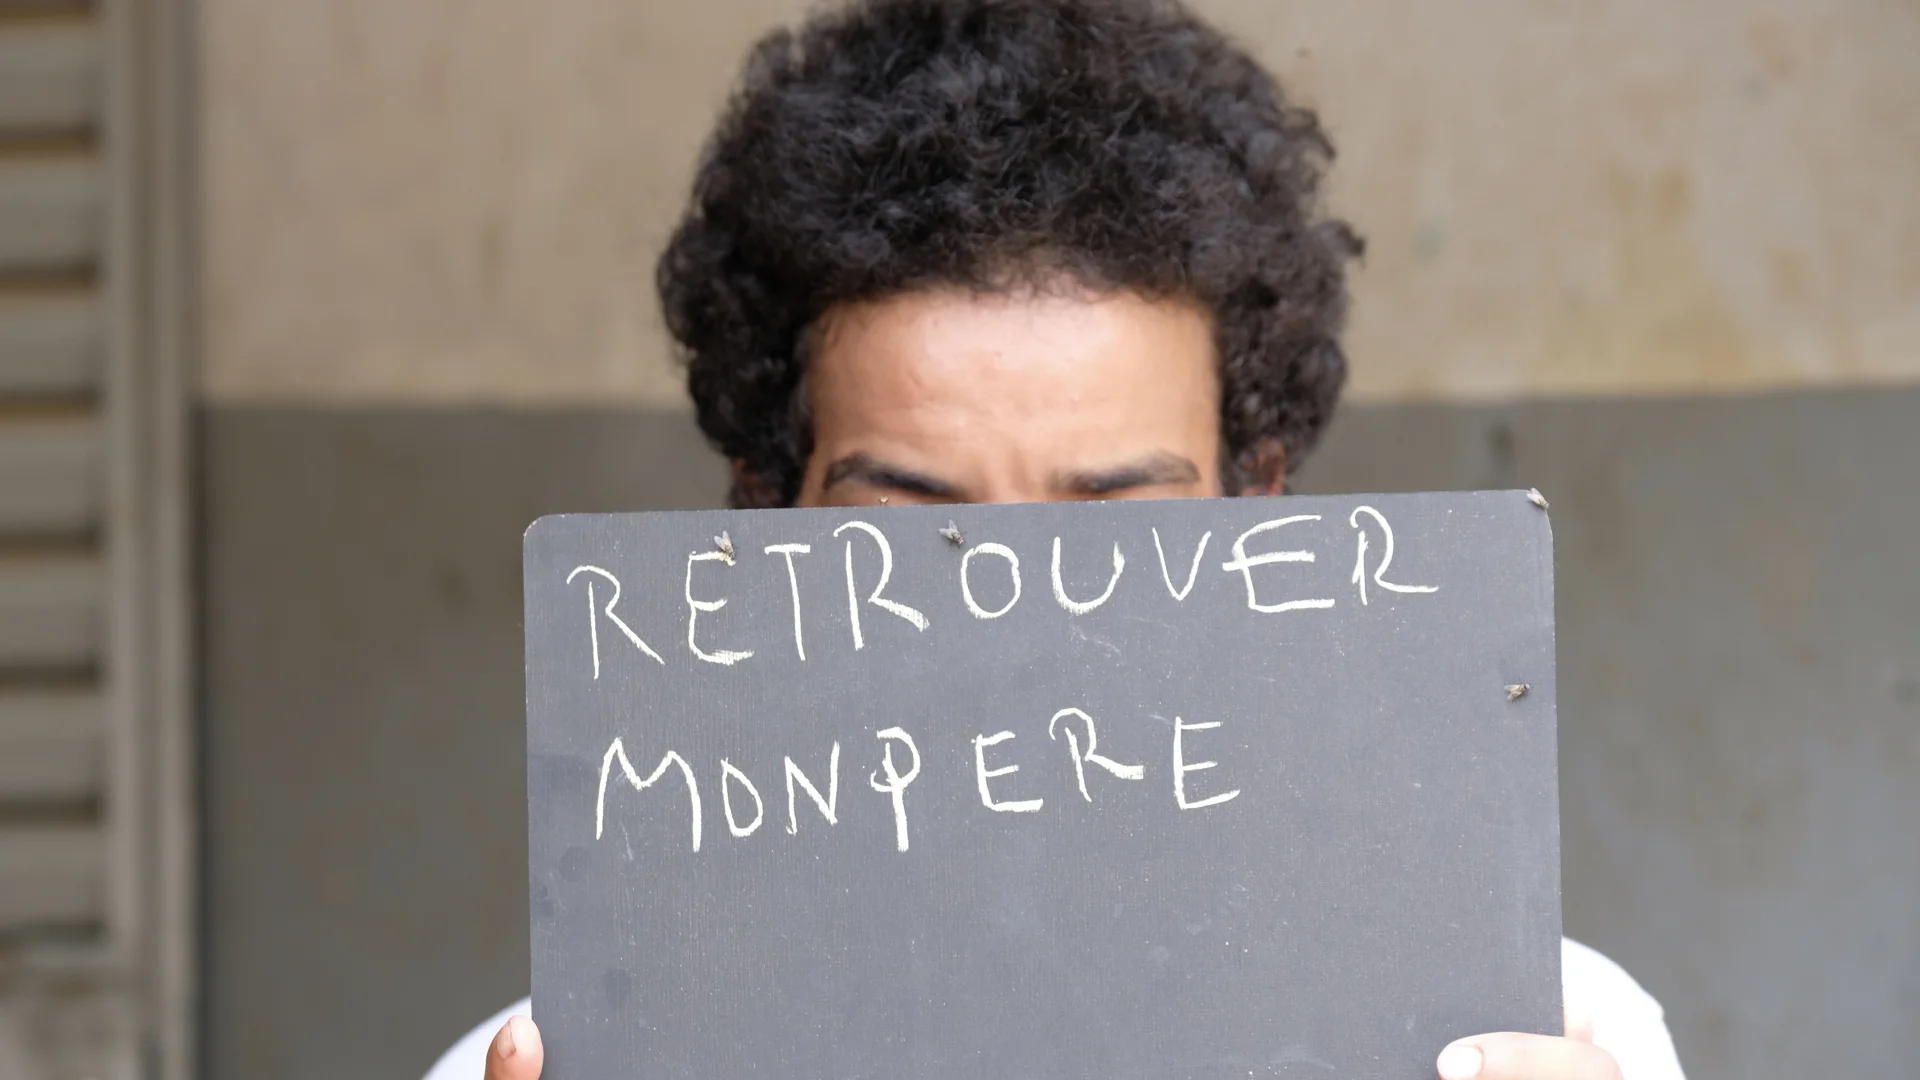 RETROUVER
MONPERE